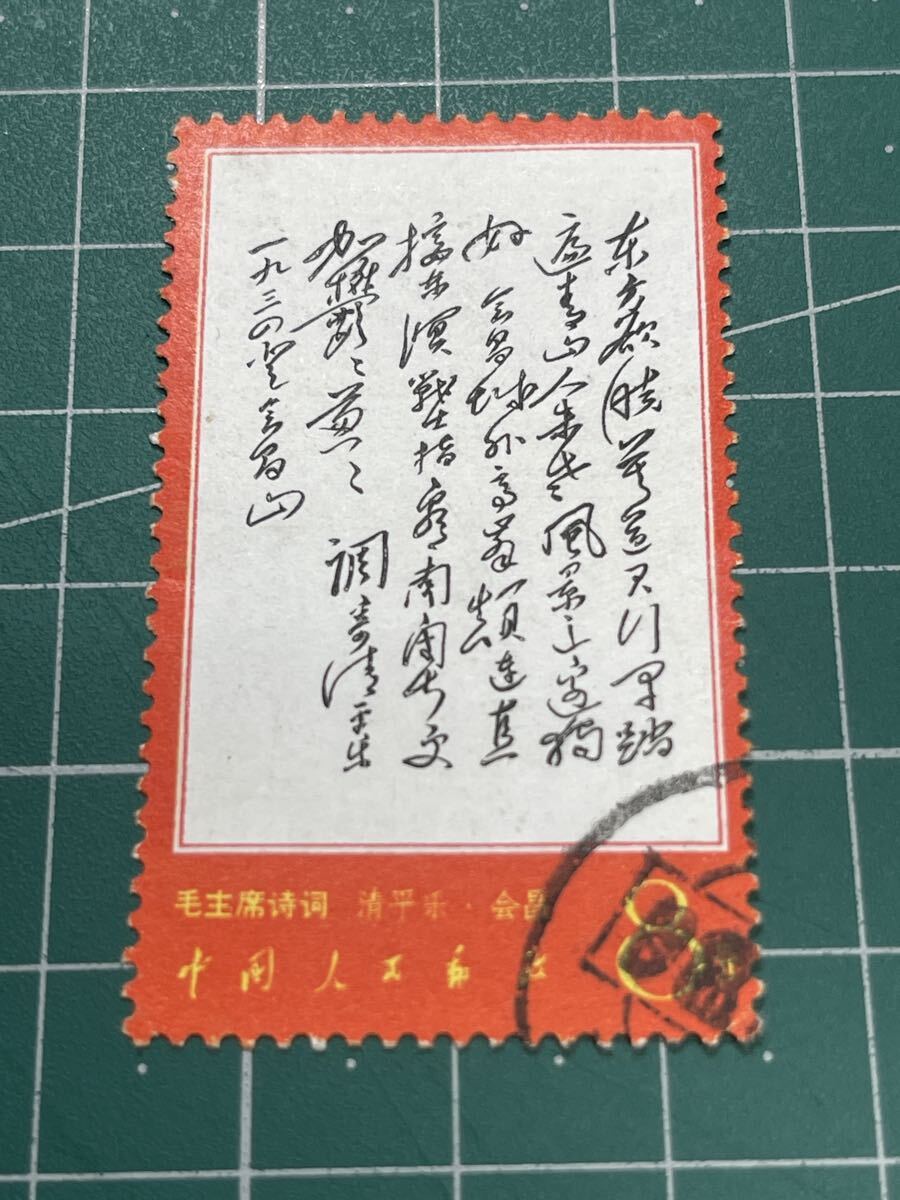 东方欲晓莫道君行早踏
遍青山人未老風景这边独
好 会昌城外高峯颠连直
接东溟战士指看南粤更
加鬱〻葱〻 調寄清平乐
一九三四登会昌山
毛主席诗词 清平乐·会昌
中国人民邮政
8